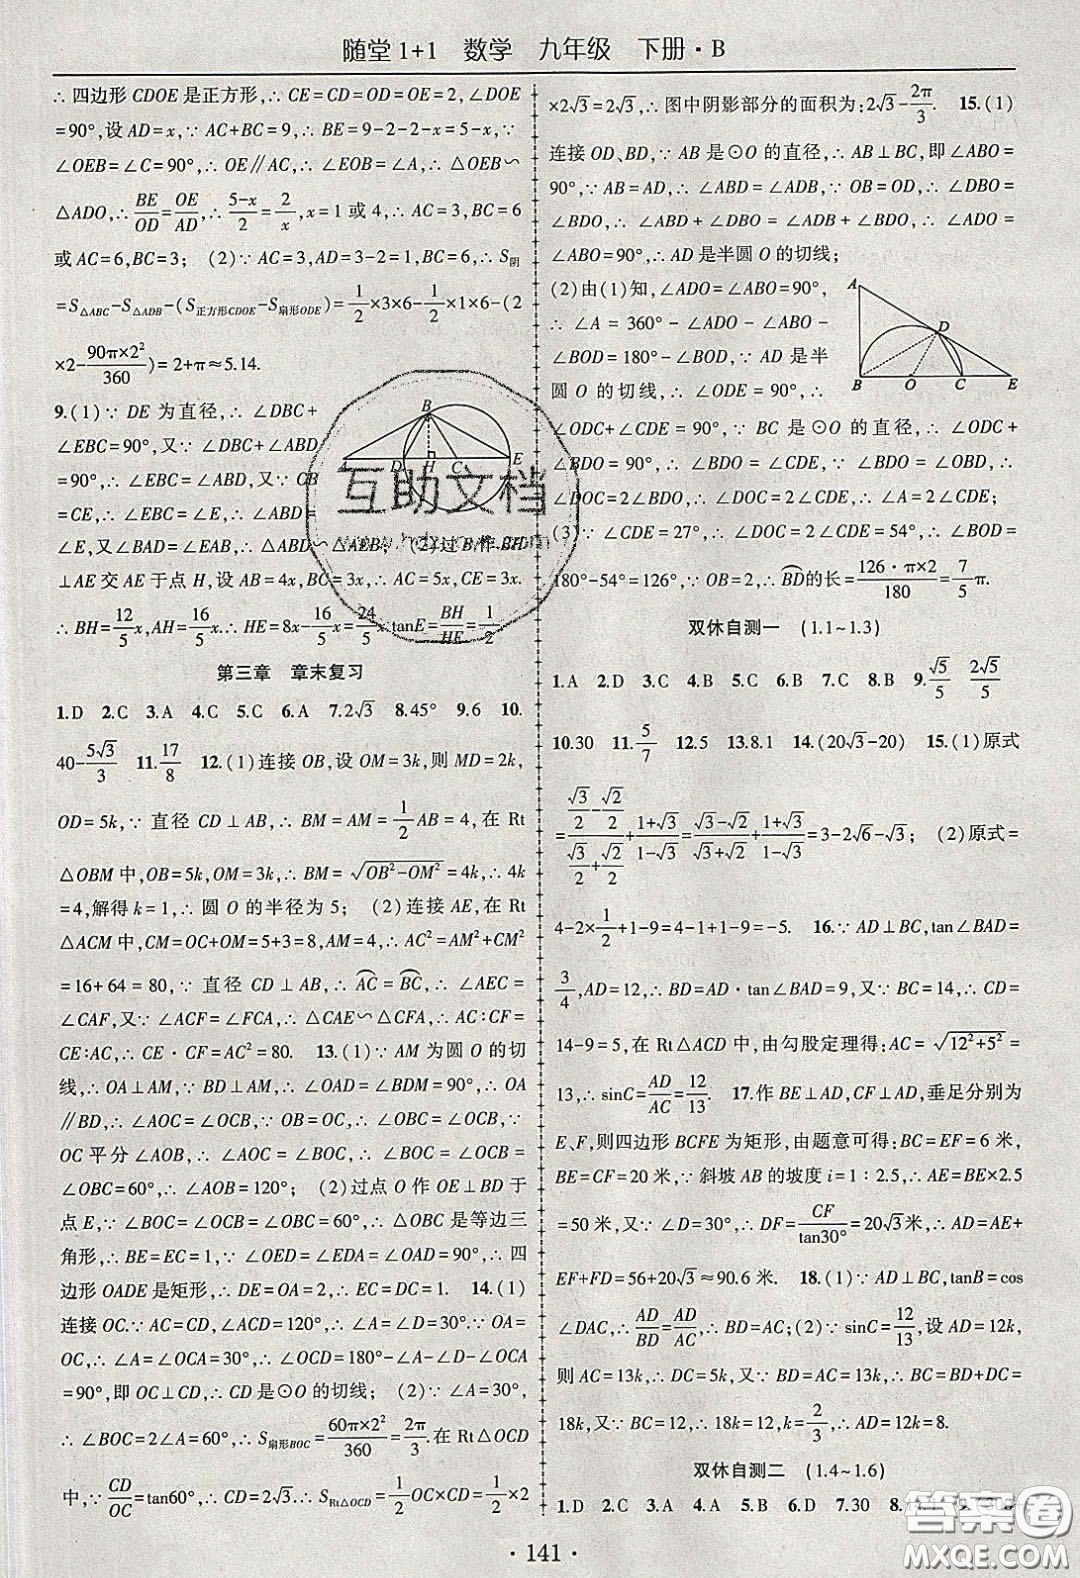 随堂1+1 数学 九年级 下册·B
∴四边形CDOE是正方形,∴CE=CD=OD=OE=2,∠DOE
=90°,设AD=x,∵AC+BC=9,∴BE=9-2-2-x=5-x,∵
∠OEB=∠C=90°,∴OE∥AC,∴∠EOB=∠A,∴△OEB∽
△ADO,∴BE/OD=OE/AD,∴(5-x)/2=2/x,x=1或4,∴AC=3,BC=6
或AC=6,BC=3; (2)∵AC=3,AD=3-2=1,BC=6,∴S阴
=S△ABC-S△ADB-(S正方形CDOE-S扇形ODE)=1/2×3×6-1/2×1×6-(2
×2-90π×2²/360)=2+π≈5.14.
9.(1)∵DE为直径,∴∠DBC+
∠EBC=90°,又∵∠DBC+∠ABD
=90°,∴∠EBC=∠ABD,又∵CB
=CE,∴∠EBC=∠E,∴∠ABD=
∠E,又∠BAD=∠EAB,∴△ABD∽△AEB; (2)过B作BH
⊥AE交AE于点H,设AB=4x,BC=3x,∴AC=5x,CE=3x.
∴BH=12/5x,AH=16/5x.∴HE=8x-16/5x=24/5x,tanE=BH/HE=1/2.
A D H C E B
第三章 章末复习
1.D 2.C 3.A 4.C 5.C 6.A 7.2√3 8.45° 9.6 10.
40-5√3/3 11.17/8 12.(1)连接OB,设OM=3k,则MD=2k,
OD=5k,∵直径CD⊥AB,∴BM=AM=1/2AB=4,在Rt
△OBM中,OB=5k,OM=3k,∴BM=√(OB²-OM²)=4k,∴4k
=4,解得k=1,∴圆O的半径为5; (2)连接AE,在Rt
△ACM中,CM=OC+OM=5+3=8,AM=4,∴AC²=AM²+CM²
=16+64=80,∵直径CD⊥AB,∴AC=BC,∴∠AEC=
∠CAF,又∵∠ACF=∠FCA,∴△CAE∽△CFA,∴AC:CF=
CE:AC,∴CE·CF=AC²=80. 13.(1)∵AM为圆O的切
线,∴OA⊥AM,∵BD⊥AM,∴∠OAM=∠BDM=90°,∴OA
∥BD,∴∠AOC=∠OCB,∵OB=OC,∴∠OBC=∠OCB,∵
OC平分∠AOB,∴∠AOC=∠BOC,∴∠BOC=∠OCB=
∠OBC=60°,∴∠AOB=120°; (2)过点O作OE⊥BD于
点E,∵∠BOC=∠OCB=∠OBC=60°,∴△OBC是等边三
角形,∴BE=EC=1,∵∠OED=∠EDA=∠OAD=90°,∴四
边形OADE是矩形,∴DE=OA=2,∴EC=DC=1. 14.(1)
连接OC.∵AC=CD,∠ACD=120°,∴∠A=∠D=30°.∵OA=
OC,∴∠A=∠OCA=30°,∴∠OCD=180°-∠A-∠D-∠OCA
=90°,即OC⊥CD,∴CD是⊙O的切线; (2)∵∠A=30°,
∴∠BOC=2∠A=60°,∴S扇形BOC=60π×2²/360=2π/3.在Rt△OCD
中,∵CD/OC=tan60°,∴CD=2√3.∴S Rt△OCD=1/2OC×CD=1/2×2
×2√3=2√3,∴图中阴影部分的面积为:2√3-2π/3. 15.(1)
连接OD、BD,∵AB是⊙O的直径,∴AB⊥BC,即∠ABO=
90°,∵AB=AD,∴∠ABD=∠ADB,∵OB=OD,∴∠DBO=
∠BDO,∴∠ABD+∠DBO=∠ADB+∠BDO,∴∠ADO=
∠ABO=90°,∴AD是半圆O的切线;
(2)由(1)知,∠ADO=∠ABO=90°,
∴∠A=360°-∠ADO-∠ABO-
∠BOD=180°-∠BOD,∵AD是半
圆O的切线,∴∠ODE=90°,∴
∠ODC+∠CDE=90°,∵BC是⊙O的直径,∴∠ODC+
∠BDO=90°,∴∠BDO=∠CDE,∵∠BDO=∠OBD,∴
∠DOC=2∠BDO,∴∠DOC=2∠CDE,∴∠A=2∠CDE;
(3)∵∠CDE=27°,∴∠DOC=2∠CDE=54°,∴∠BOD=
180°-54°=126°,∵OB=2,∴BD的长=126·π×2/180=7/5π.
A D B O C E
双休自测一 (1.1~1.3)
1.A 2.D 3.C 4.B 5.C 6.B 7.C 8.B 9.√5/5 2√5/5
10.30 11.5/7 12.5 13.8.1 14.(20√3-20) 15.(1)原式
=(√3/2-√2/2)/(√3/2+√2/2)+(1+√3)/(1-√3)=(√3-√2)/(√3+√2)+(1+√3)/(1-√3)=3-2√6-√3; (2)原式=
4-2×1/2+1-9=4-1+1-9=-5. 16.∵AD⊥BC,tan∠BAD=
3/4,AD=12,∴BD=AD·tan∠BAD=9,又∵BC=14,∴CD=
14-9=5,在Rt△ACD中,由勾股定理得:AC=√(12²+5²)=
13,∴sinC=AD/AC=12/13. 17.作BE⊥AD,CF⊥AD,垂足分别为
E、F,则四边形BCFE为矩形,由题意可得:BC=EF=6米,
BE=CF=20米,∵斜坡AB的坡度i=1:2.5,∴AE=BE×2.5
=50米,又∵∠D=30°,∴DF=CF/tan30°=20√3米,∴AD=AE+
EF+FD=56+20√3≈90.6米. 18.(1)∵AD⊥BC,tanB=cos
∠DAC,∴AD/BD=AD/AC,∴BD=AC;(2)∵sinC=12/13,设AD=12k,
则AC=13k,∴DC=5k,又∵BD=AC=13k,∴BC=BD+DC=
18k,又∵BC=12,∴18k=12,k=2/3,∴AD=12k=8.
双休自测二 (1.4~1.6)
1.D 2.C 3.C 4.B 5.B 6.D 7.30 8.
·141·
互助文档
答案圈
MXQE.COM